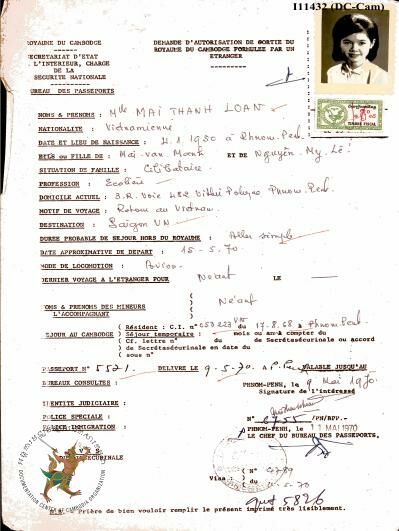 I11432 (DC-Cam)
ROYAUME DU CAMBODGE
SECRETARIAT D'ETAT
A L'INTERIEUR, CHARGE
DE LA
SECURITE NATIONALE
BUREAU DES PASSEPORTS
DEMANDE D'AUTORISATION DE SORTIE DU
ROYAUME DU CAMBODGE FORMULEE PAR UN
ETRANGER
TIMBRE FISCAL
NOMS & PRENOMS : Mlle MAI THANH LOAN
NATIONALITE : Vietnamienne
DATE ET LIEU DE NAISSANCE : 4.1.1950 à Phnom-Penh
FILS ou FILLE DE : Mai-Van ET DE Nguyên-My-Lê
SITUATION DE FAMILLE : Célibataire
PROFESSION : Ecolière
DOMICILE ACTUEL : 3.R. Voie 482 Phnom Penh
MOTIF DE VOYAGE : Retour au Vietnam
DESTINATION : Saigon VN
DUREE PROBABLE DE SEJOUR HORS DU ROYAUME : Aller simple
DATE APPROXIMATIVE DE DEPART : 15-5-70
MODE DE LOCOMOTION : Avion
DERNIER VOYAGE A L'ETRANGER POUR Néant LE —
NOMS & PRENOMS DES MINEURS
L'ACCOMPAGNANT Néant
SEJOUR AU CAMBODGE
Résident : C.I. n° 050223 du 17.8.68 à Phnom Penh
Séjour temporaire : mois ou am à compter du
Cf. lettre n° du de Secrétasécurinale ou accord
de Secrétasécurinale en date du
sous n°
PASSEPORT N° 5521 DELIVRE LE 9-5-70 à P.Penh VALABLE JUSQU'AU
BUREAUX CONSULTES :
PHNOM-PENH, le 9 Mai 1970
Signature de l'intéressé
IDENTITE JUDICIAIRE :
POLICE SPECIALE :
POLICE IMMIGRATION :
N° 6755 /PN/BPP.-
PHNOM-PENH, le 11 MAI 1970
LE CHEF DU BUREAU DES PASSEPORTS,
VISA
DE SECURINALE
DOCUMENTATION CENTER OF CAMBODIA ORGANIZATION
Visa :
N°
du
5826
N.B. Prière de bien vouloir remplir le présent imprimé très lisiblement.